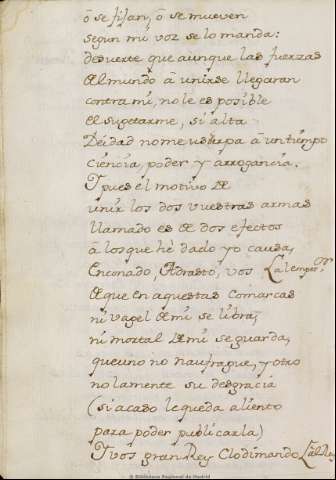 ó se fijan, ó se mueven
segun mi voz se lo manda:
desuerte que aunque las fuerzas
del mundo á unirse llegaran
contra mi, no le es posible
el sugetarme, si alta
Deidad no me usurpa á un tiempo
ciencia, poder y arrogancia.
Y pues el motivo de
unir los dos vuestras armas
llamado es de dos efectos
á los que hé dado yo causa,
Enconado, Adrasto, vos
Al emper.or
de que en aquestas comarcas
ni vagel de mi se libra,
ni mortal de mi se guarda,
que uno no naufrague, y otro
no lamente su desgracia
(si acaso le queda aliento
para poder publicarla)
Y vos gran Rey Clodimando, Al Rey
Biblioteca Regional de Madrid